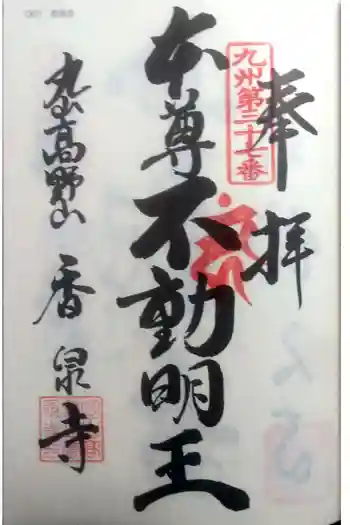 奉拝
九州第二十七番
本尊不動明王
丸山高野山 香泉寺